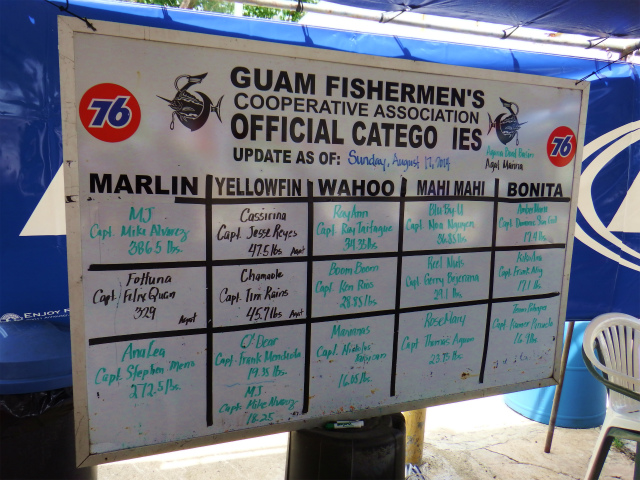 76
GUAM FISHERMEN'S
COOPERATIVE ASSOCIATION
OFFICIAL CATEGO IES
UPDATE AS OF: Sunday, August 17, 2014
Agat Marina
76
MARLIN
YELLOWFIN
WAHOO
MAHI MAHI
BONITA
MJ
Capt. Mike Alvarez
386.5 lbs.
Cassirina
Capt. Jesse Reyes
47.5 lbs Agat
RayAnn
Capt. Ray Tartague
34.35 lbs
Blu Bay U
Capt. Noa Nguyen
36.85 lbs
Capt.
17.4 lbs
Fortuna
Capt. Felix Quan
329 Agat
Chamaole
Capt. Tim Rains
45.7 lbs Agat
Boom Boom
Capt. Ken Rios
28.85 lbs
Reel Nuts
Capt. Gerry Bejerana
29.1 lbs
Capt. Frank
17.1 lbs
AnaLea
Capt. Stephen Meno
272.5 lbs.
Capt. Frank Mendiola
19.35 lbs.
MJ
Capt. Mike Alvarez
18.25
Capt.
16.65 lbs
RoseMary
Capt. Thomas
23.75 lbs
Capt.
16.9 lbs
ENJOY